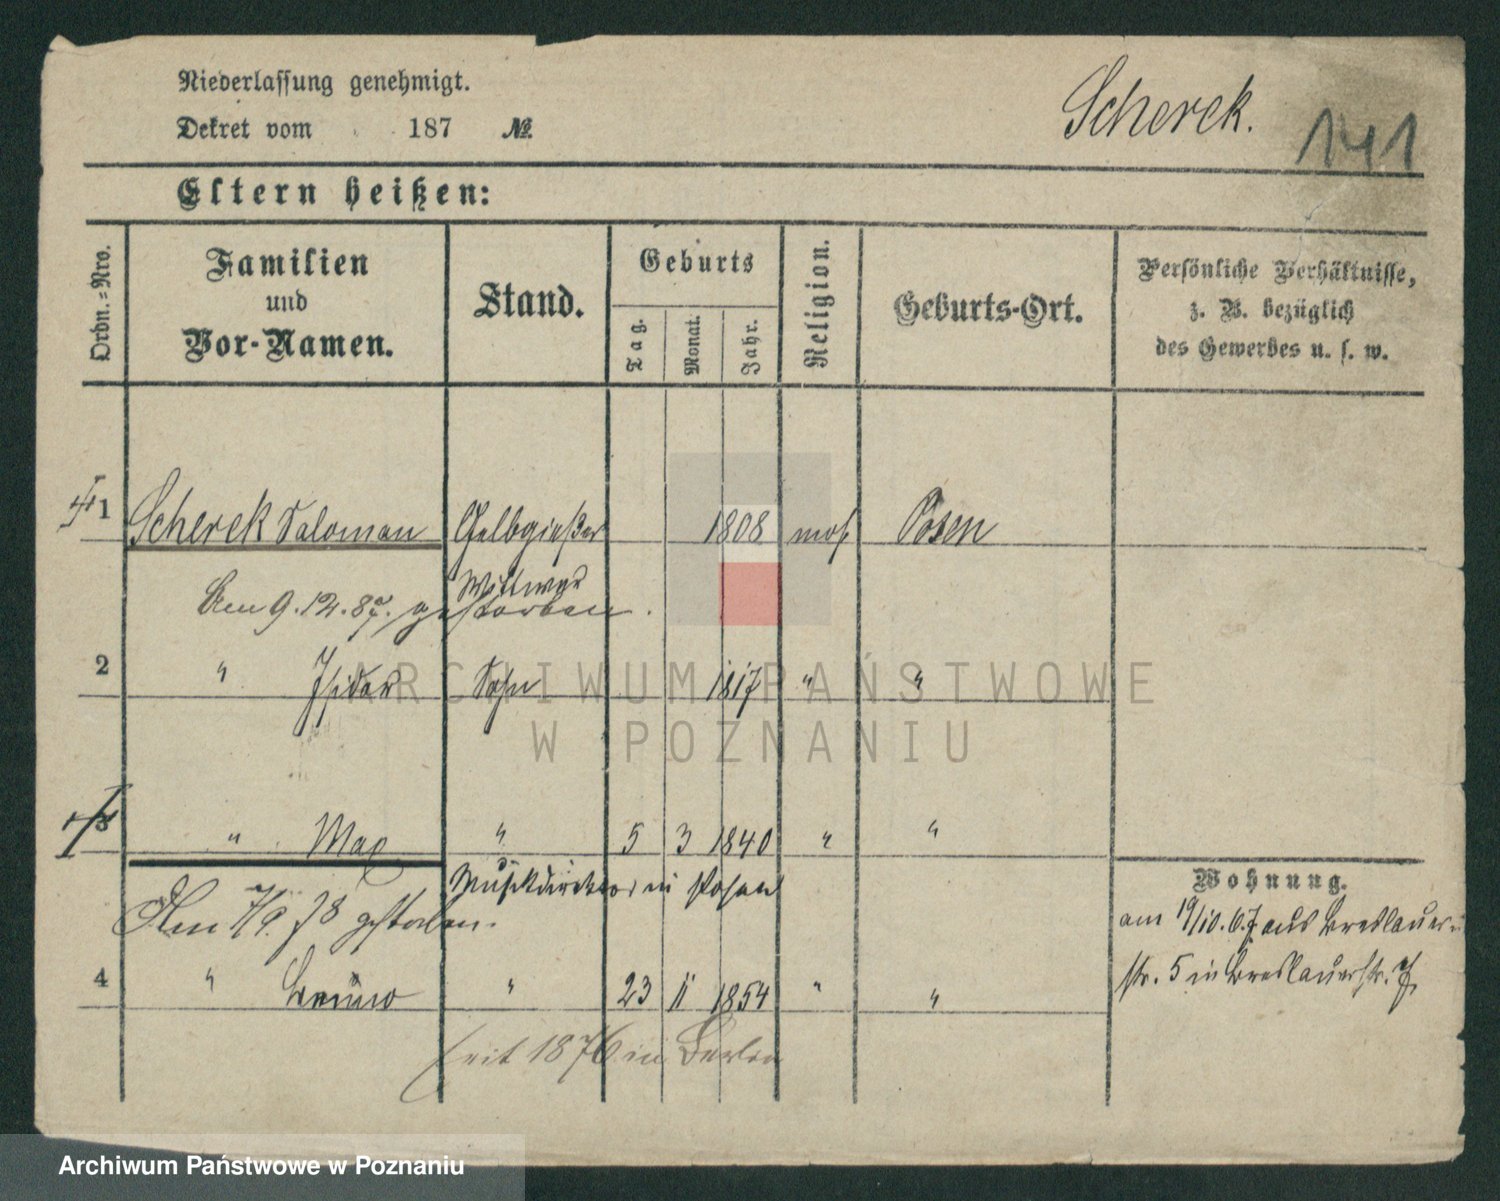 Niederlassung genehmigt.
Dekret vom 187 №
Scherek.
141
Eltern heißen:
Ordn.-Nro.
Familien
und
Vor-Namen.
Stand.
Geburts
Tag.
Monat.
Jahr.
Religion.
Geburts-Ort.
Persönliche Verhältnisse,
z. B. bezüglich
des Gewerbes u. s. w.
1 Scherek Salomon Gelbgießer 1808 mos. Posen
Wittwer
Am 9.12.87. gestorben.
2 " Isidor Sohn 1817 " "
3 " Max " 5 3 1840 " "
Musikdirektor in Posen
Am 7/9. 78 gestorben.
4 " Bruno " 23 11 1854 " "
seit 1876 in Berlin
Wohnung.
am 19/10.67 aus Breslauer-
str. 5 in Breslauerstr. 7.
ARCHIWUM PAŃSTWOWE
W POZNANIU
Archiwum Państwowe w Poznaniu